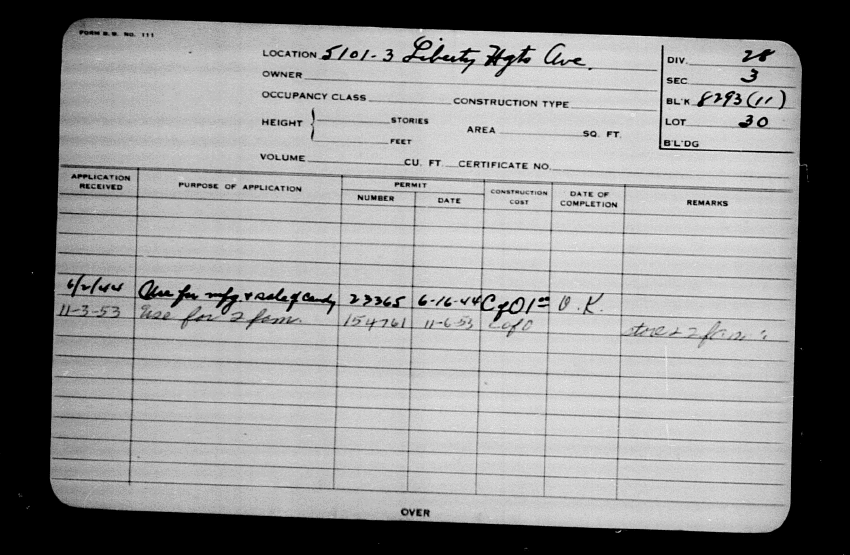 FORM B.B. NO. 111
LOCATION 5101-3 Liberty Hgts Ave.
OWNER
OCCUPANCY CLASS CONSTRUCTION TYPE
HEIGHT STORIES
FEET
AREA SQ. FT.
VOLUME CU. FT. CERTIFICATE NO.
DIV. 28
SEC 3
BL'K 8293 (11)
LOT 30
B'L'DG
APPLICATION RECEIVED PURPOSE OF APPLICATION PERMIT NUMBER DATE CONSTRUCTION COST DATE OF COMPLETION REMARKS
6/2/44 Use for mfg. & sale of candy 23365 6-16-44 C of O 1 00 O.K.
11-3-53 Use for 2 fam. 154761 11-6-53 C of O store & 2 fam's
OVER